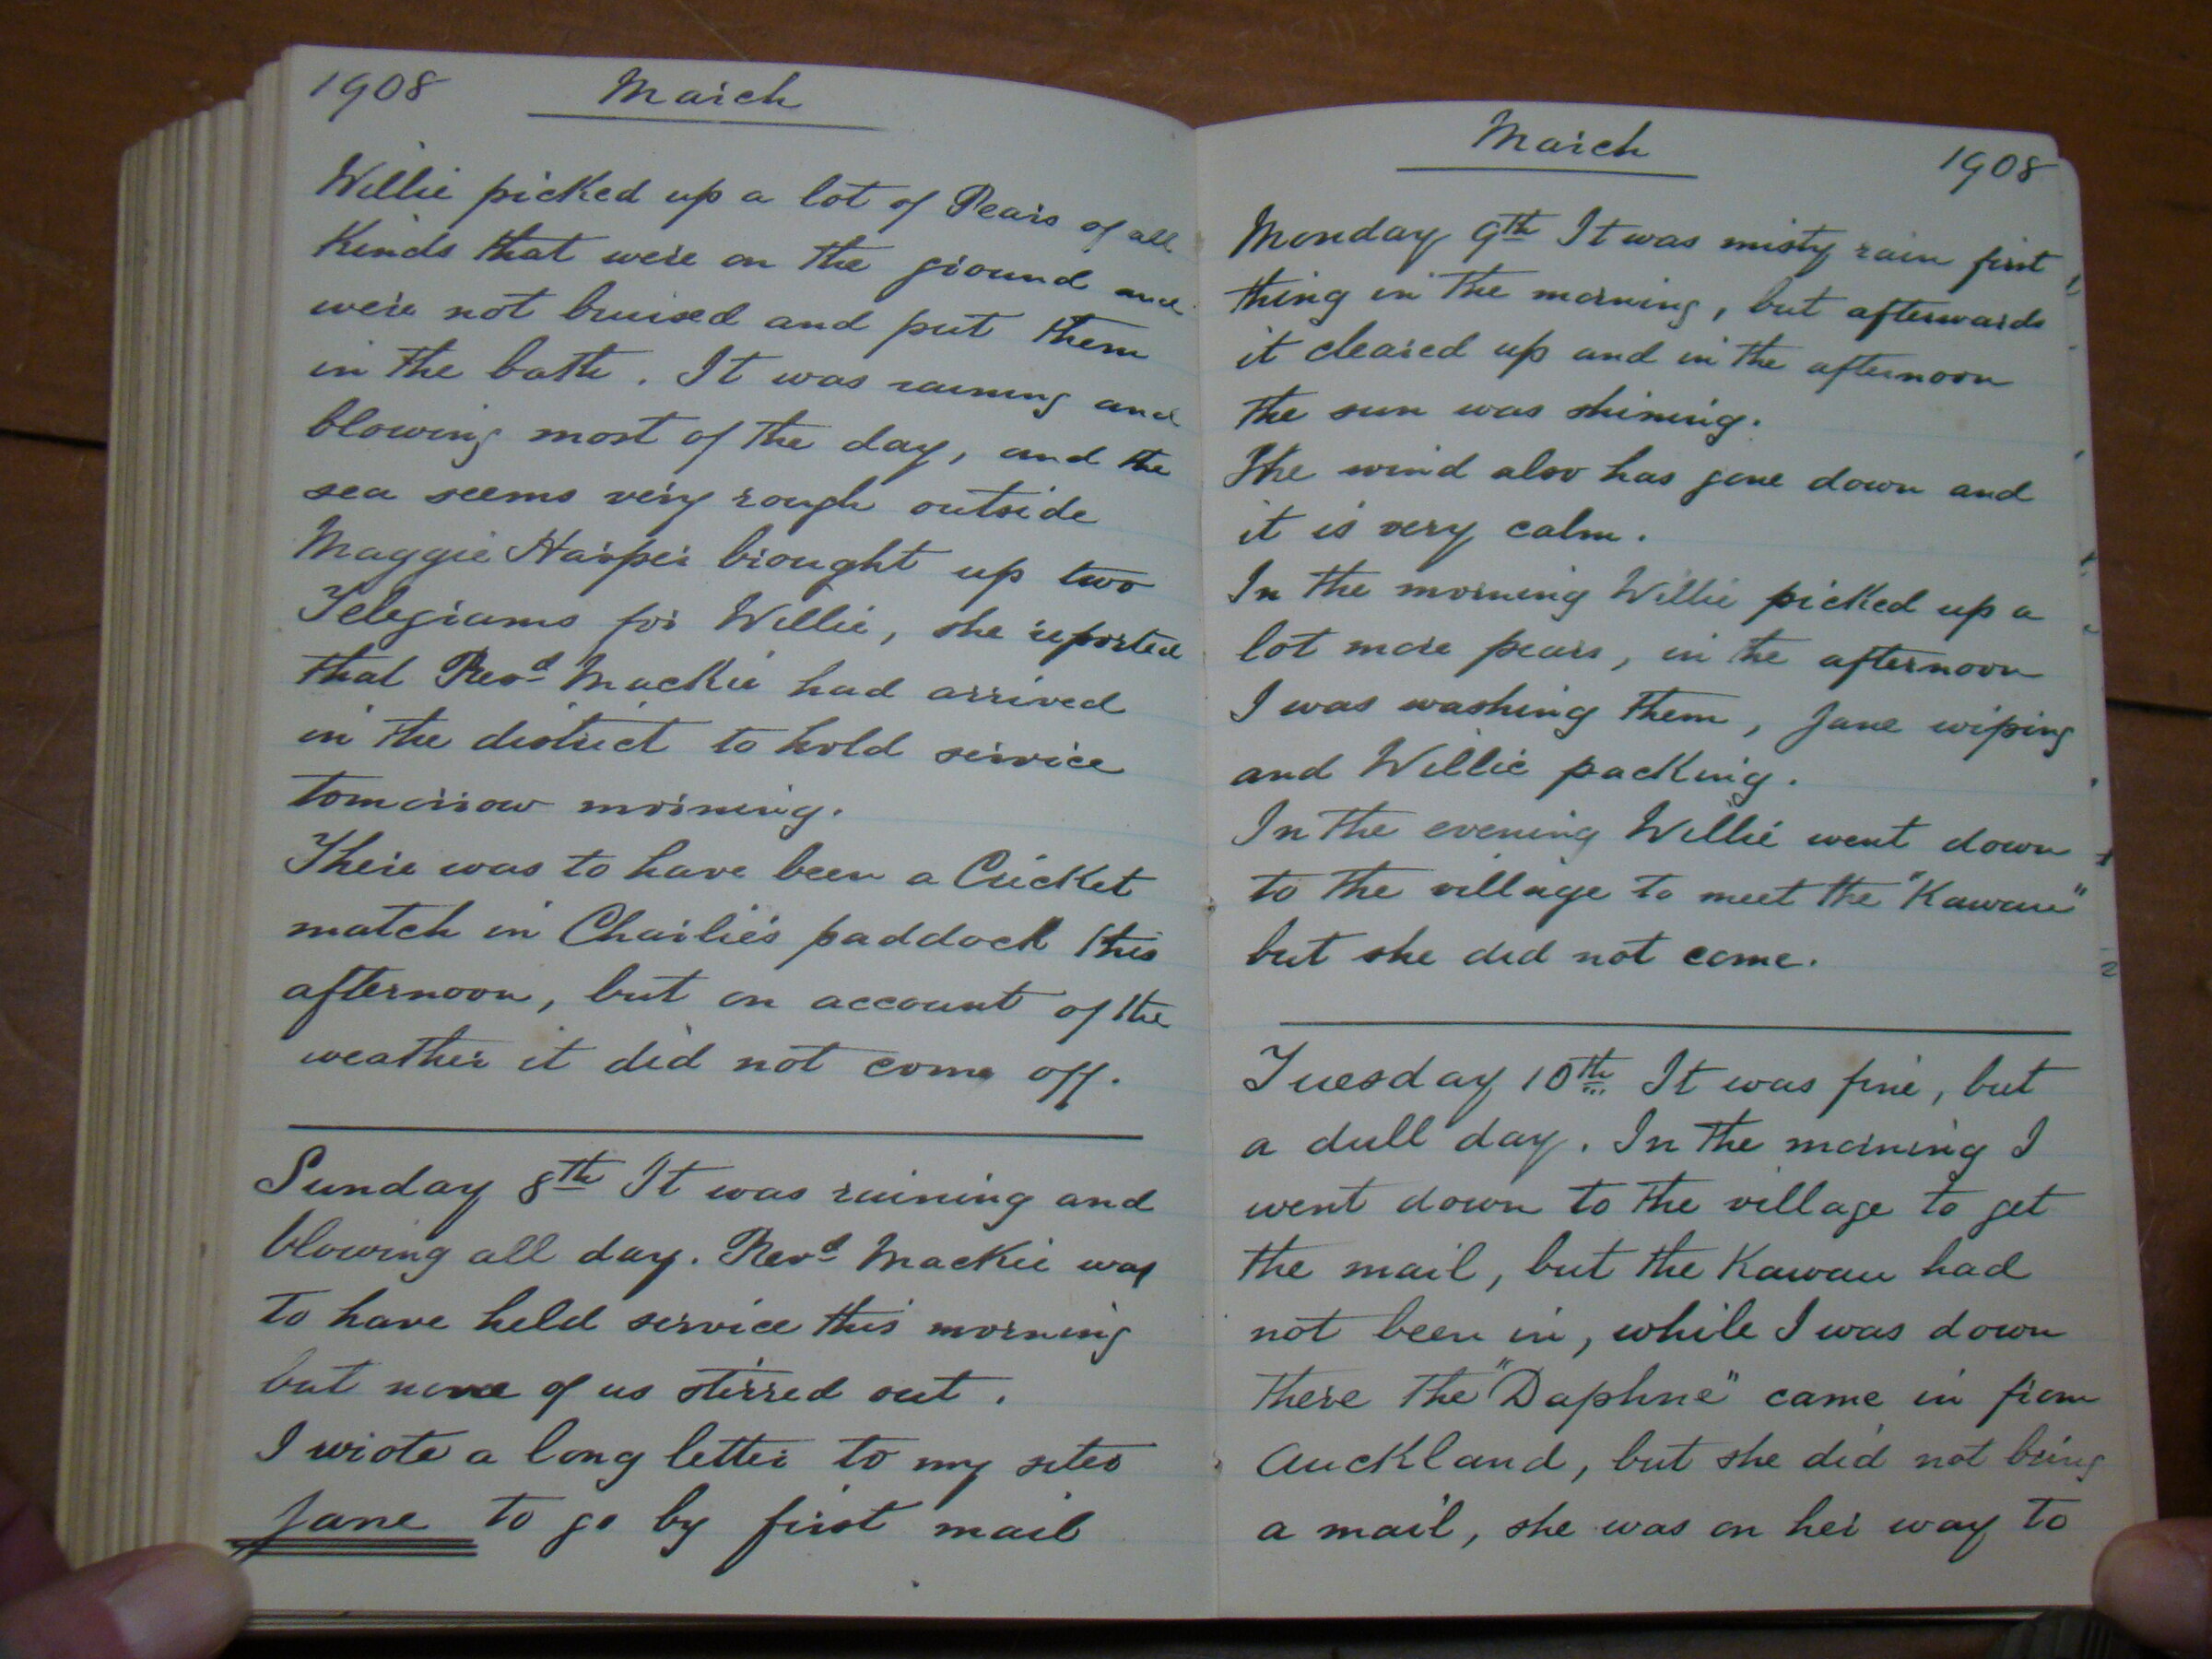 1908 March
Willie picked up a lot of Pears of all
Kinds that were on the ground and
were not bruised and put them
in the bath. It was raining and
blowing most of the day, and the
sea seems very rough outside
Maggie Harper brought up two
Telegrams for Willie, she reported
that Revd Mackie had arrived
in the district to hold service
tomorrow morning.
There was to have been a Cricket
match in Charlie's paddock this
afternoon, but on account of the
weather it did not come off.
Sunday 8th It was raining and
blowing all day. Revd Mackie was
to have held service this morning
but none of us stirred out.
I wrote a long letter to my sister
Jane to go by first mail
March 1908
Monday 9th It was misty rain first
thing in the morning, but afterwards
it cleared up and in the afternoon
the sun was shining.
The wind also has gone down and
it is very calm.
In the morning Willie picked up a
lot more pears, in the afternoon
I was washing them, Jane wiping
and Willie packing.
In the evening Willie went down
to the village to meet the "Kawau"
but she did not come.
Tuesday 10th It was fine, but
a dull day. In the morning I
went down to the village to get
the mail, but the Kawau had
not been in, while I was down
there the "Daphne" came in from
Auckland, but she did not bring
a mail, she was on her way to